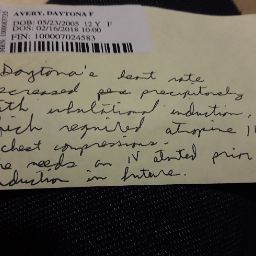 AVERY, DAYTONA F
DOB: 05/23/2005 12 Y F
DOS: 02/16/2018 10:00
FIN: 100007024583
Daytona's heart rate
decreased precipitously
with inhalational induction,
which required atropine
chest compressions.
needs an IV started prior
induction in future.